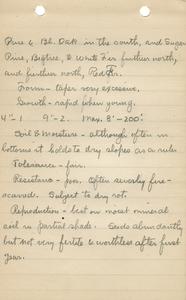 Pine & Bl. Oak in the south, and Sugar
Pine, Bigtree, & White Fir further north,
and further north, Red Fir.
Form - taper very excessive.
Growth - rapid when young.
4" - 1. 9" - 2. 1 Max. 8' - 200'.
Soil & Moisture - although often in
bottoms it holds to dry slopes as a rule.
Tolerance - fair.
Resistance - poor. Often severely fire-
scarred. Subject to dry rot.
Reproduction - best on moist mineral
soil in partial shade. Seeds abundantly
but not very fertile & worthless after first
year.